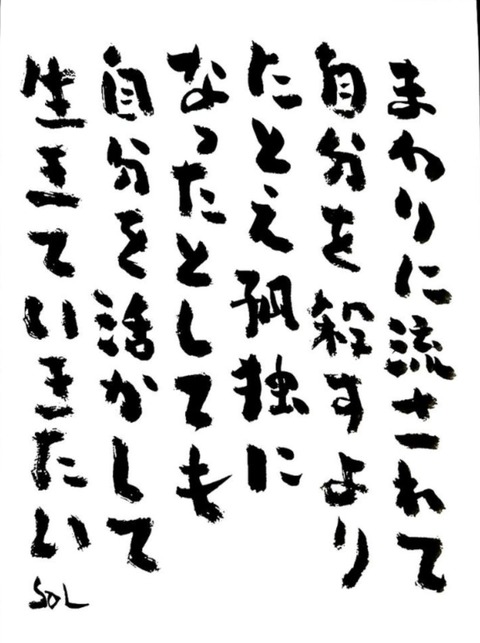 まわりに流されて
自分を殺すより
たとえ孤独に
なったとしても
自分を活かして
生きていきたい
SOL